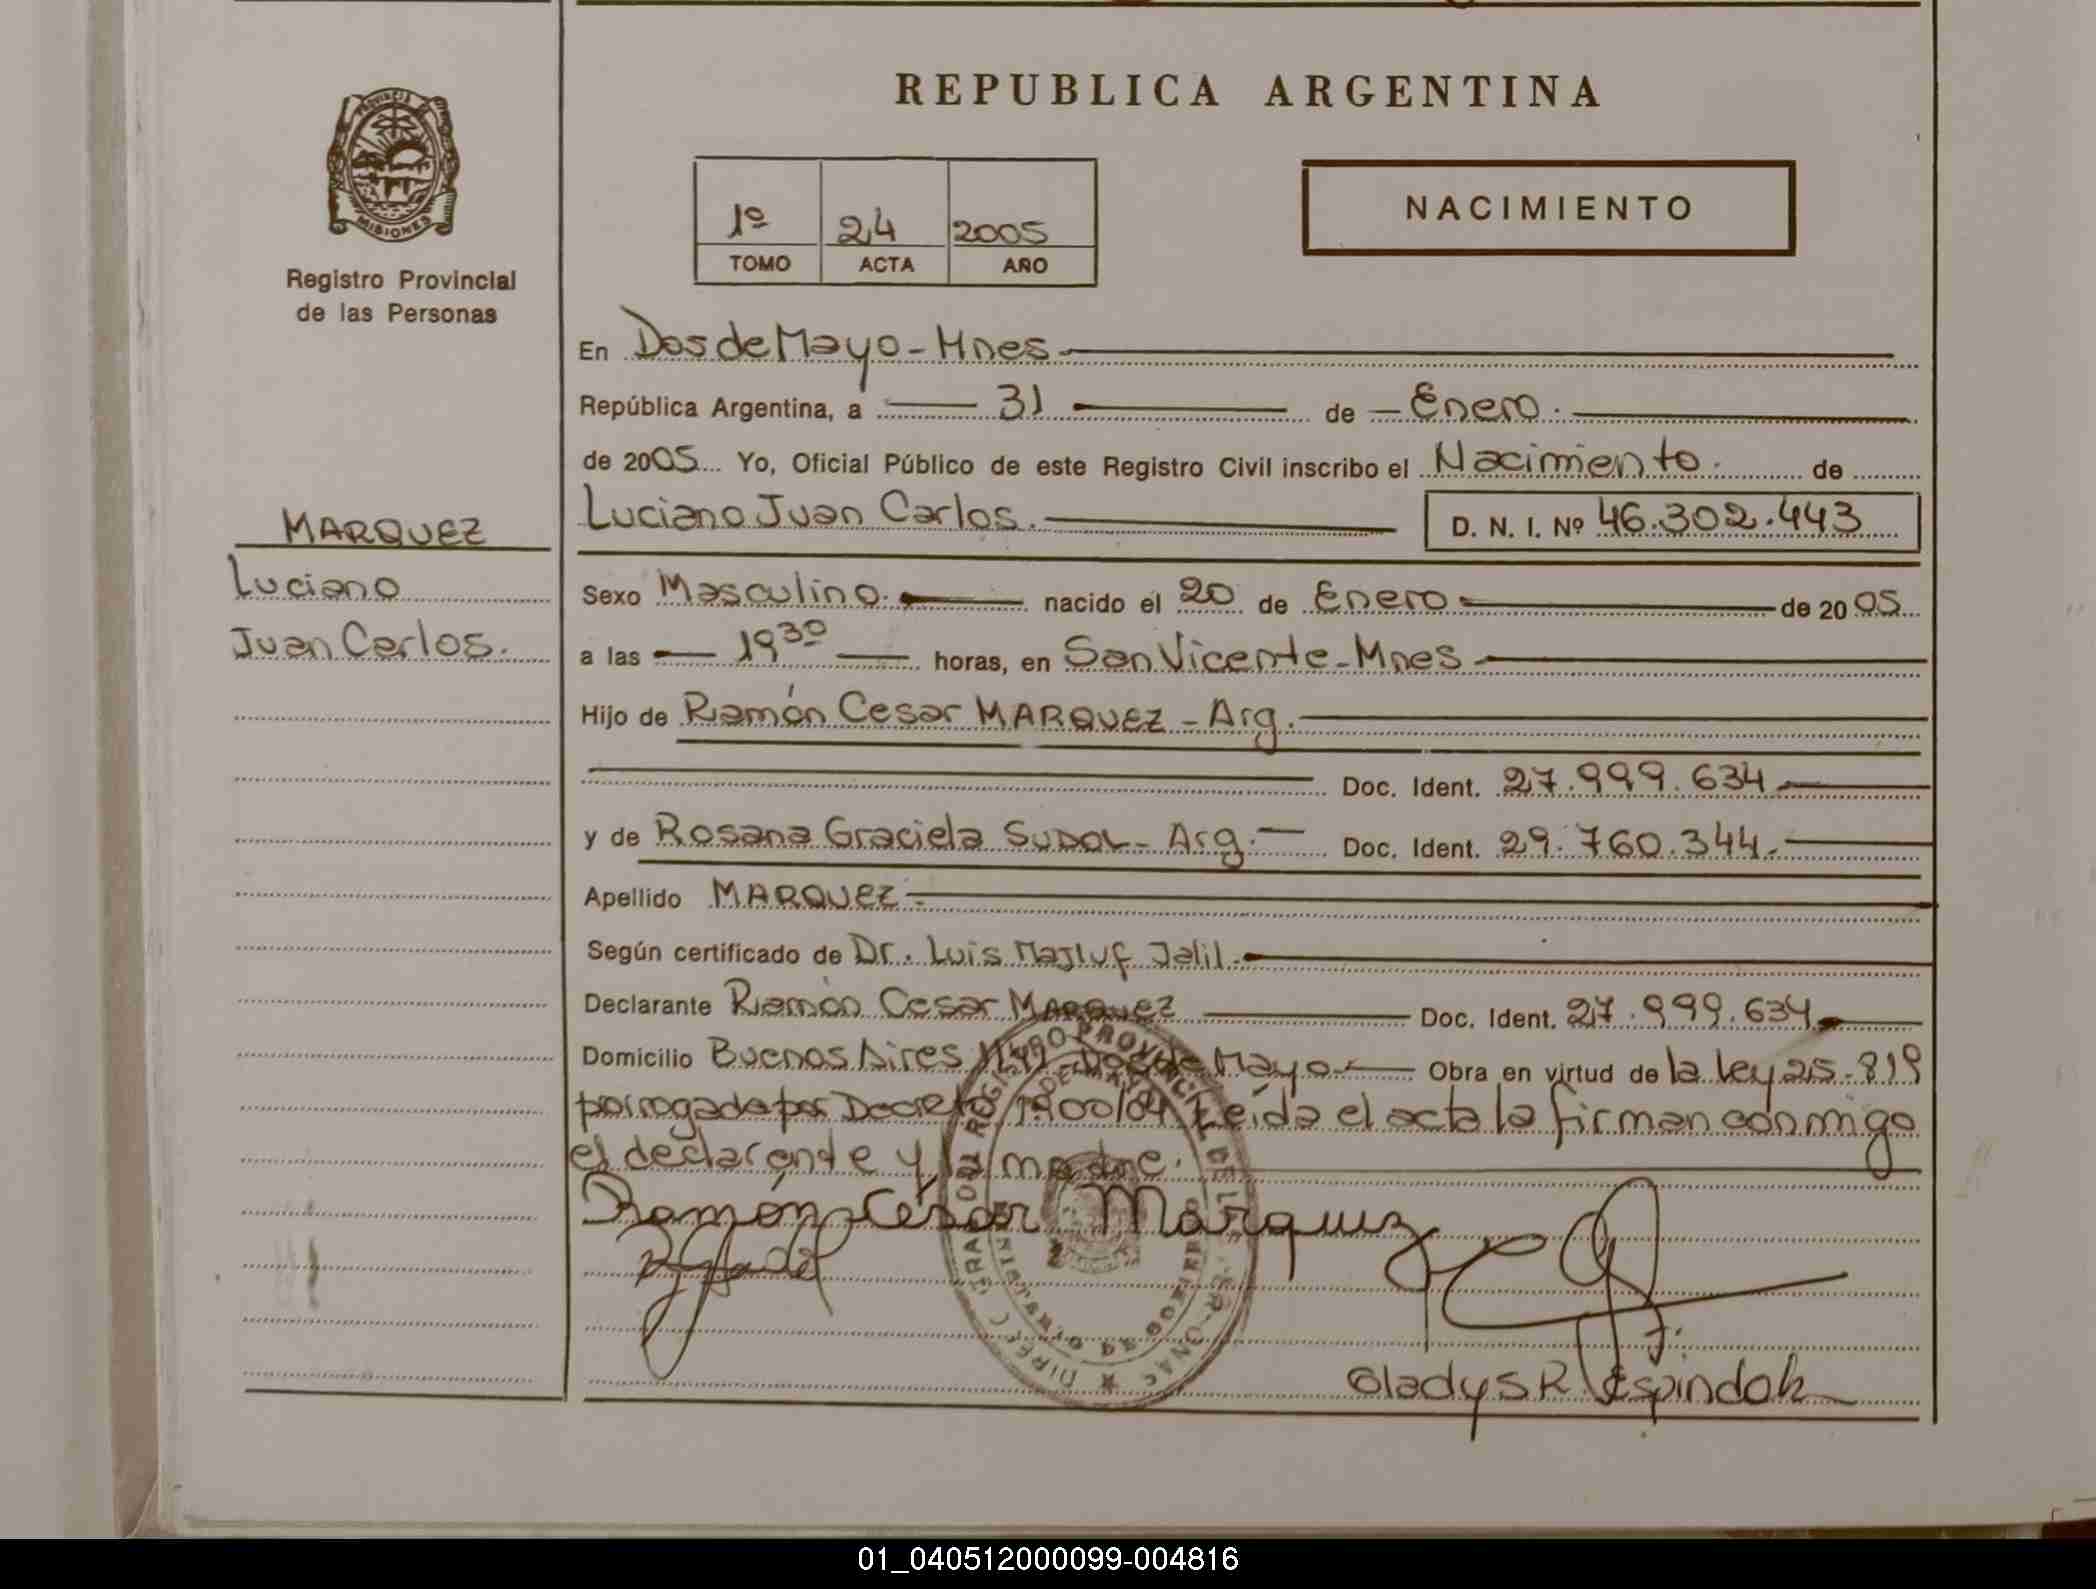 REPUBLICA ARGENTINA
PROVINCIA DE
MISIONES
Registro Provincial
de las Personas
1º 24 2005
TOMO ACTA AÑO
NACIMIENTO
En Dos de Mayo - Mnes
República Argentina, a 31 de Enero.
de 2005 Yo, Oficial Público de este Registro Civil inscribo el Nacimiento. de
Luciano Juan Carlos. D. N. I. Nº 46.302.443
MARQUEZ
Luciano
Juan Carlos.
Sexo Masculino. nacido el 20 de Enero de 2005
a las 19 30 horas, en San Vicente - Mnes
Hijo de Ramón Cesar MARQUEZ - Arg.
Doc. Ident. 27.999.634
y de Rosana Graciela SUDOL - Arg. Doc. Ident. 29.760.344.
Apellido MARQUEZ
Según certificado de Dr. Luis Majluf Jalil.
Declarante Ramón Cesar MARQUEZ Doc. Ident. 27.999.634
Domicilio Buenos Aires Dos de Mayo Obra en virtud de la ley 25.819
porrogada por Decreto 1900/04 Leída el acta la firman conmigo
el declarante y la madre.
Ramón César Márquez
Gladys R. Espindola
01_040512000099-004816